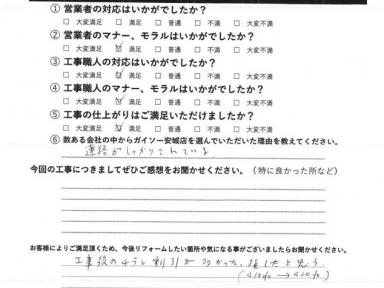 ① 営業者の対応はいかがでしたか？
□ 大変満足 □ 満足 □ 普通 □ 不満 □ 大変不満
② 営業者のマナー、モラルはいかがでしたか？
□ 大変満足 ☑ 満足 □ 普通 □ 不満 □ 大変不満
③ 工事職人の対応はいかがでしたか？
□ 大変満足 ☑ 満足 □ 普通 □ 不満 □ 大変不満
④ 工事職人のマナー、モラルはいかがでしたか？
□ 大変満足 ☑ 満足 □ 普通 □ 不満 □ 大変不満
⑤ 工事の仕上がりはご満足いただけましたか？
□ 大変満足 ☑ 満足 □ 普通 □ 不満 □ 大変不満
⑥ 数ある会社の中からガイソー安城店を選んでいただいた理由を教えてください。
連絡がしっかりされている
今回の工事につきましてぜひご感想をお聞かせください。（特に良かった所など）
お客様によりご満足頂くため、今後リフォームしたい箇所や気になる事がございましたらお聞かせください。
工事後のチラシ割引が 損したと思う